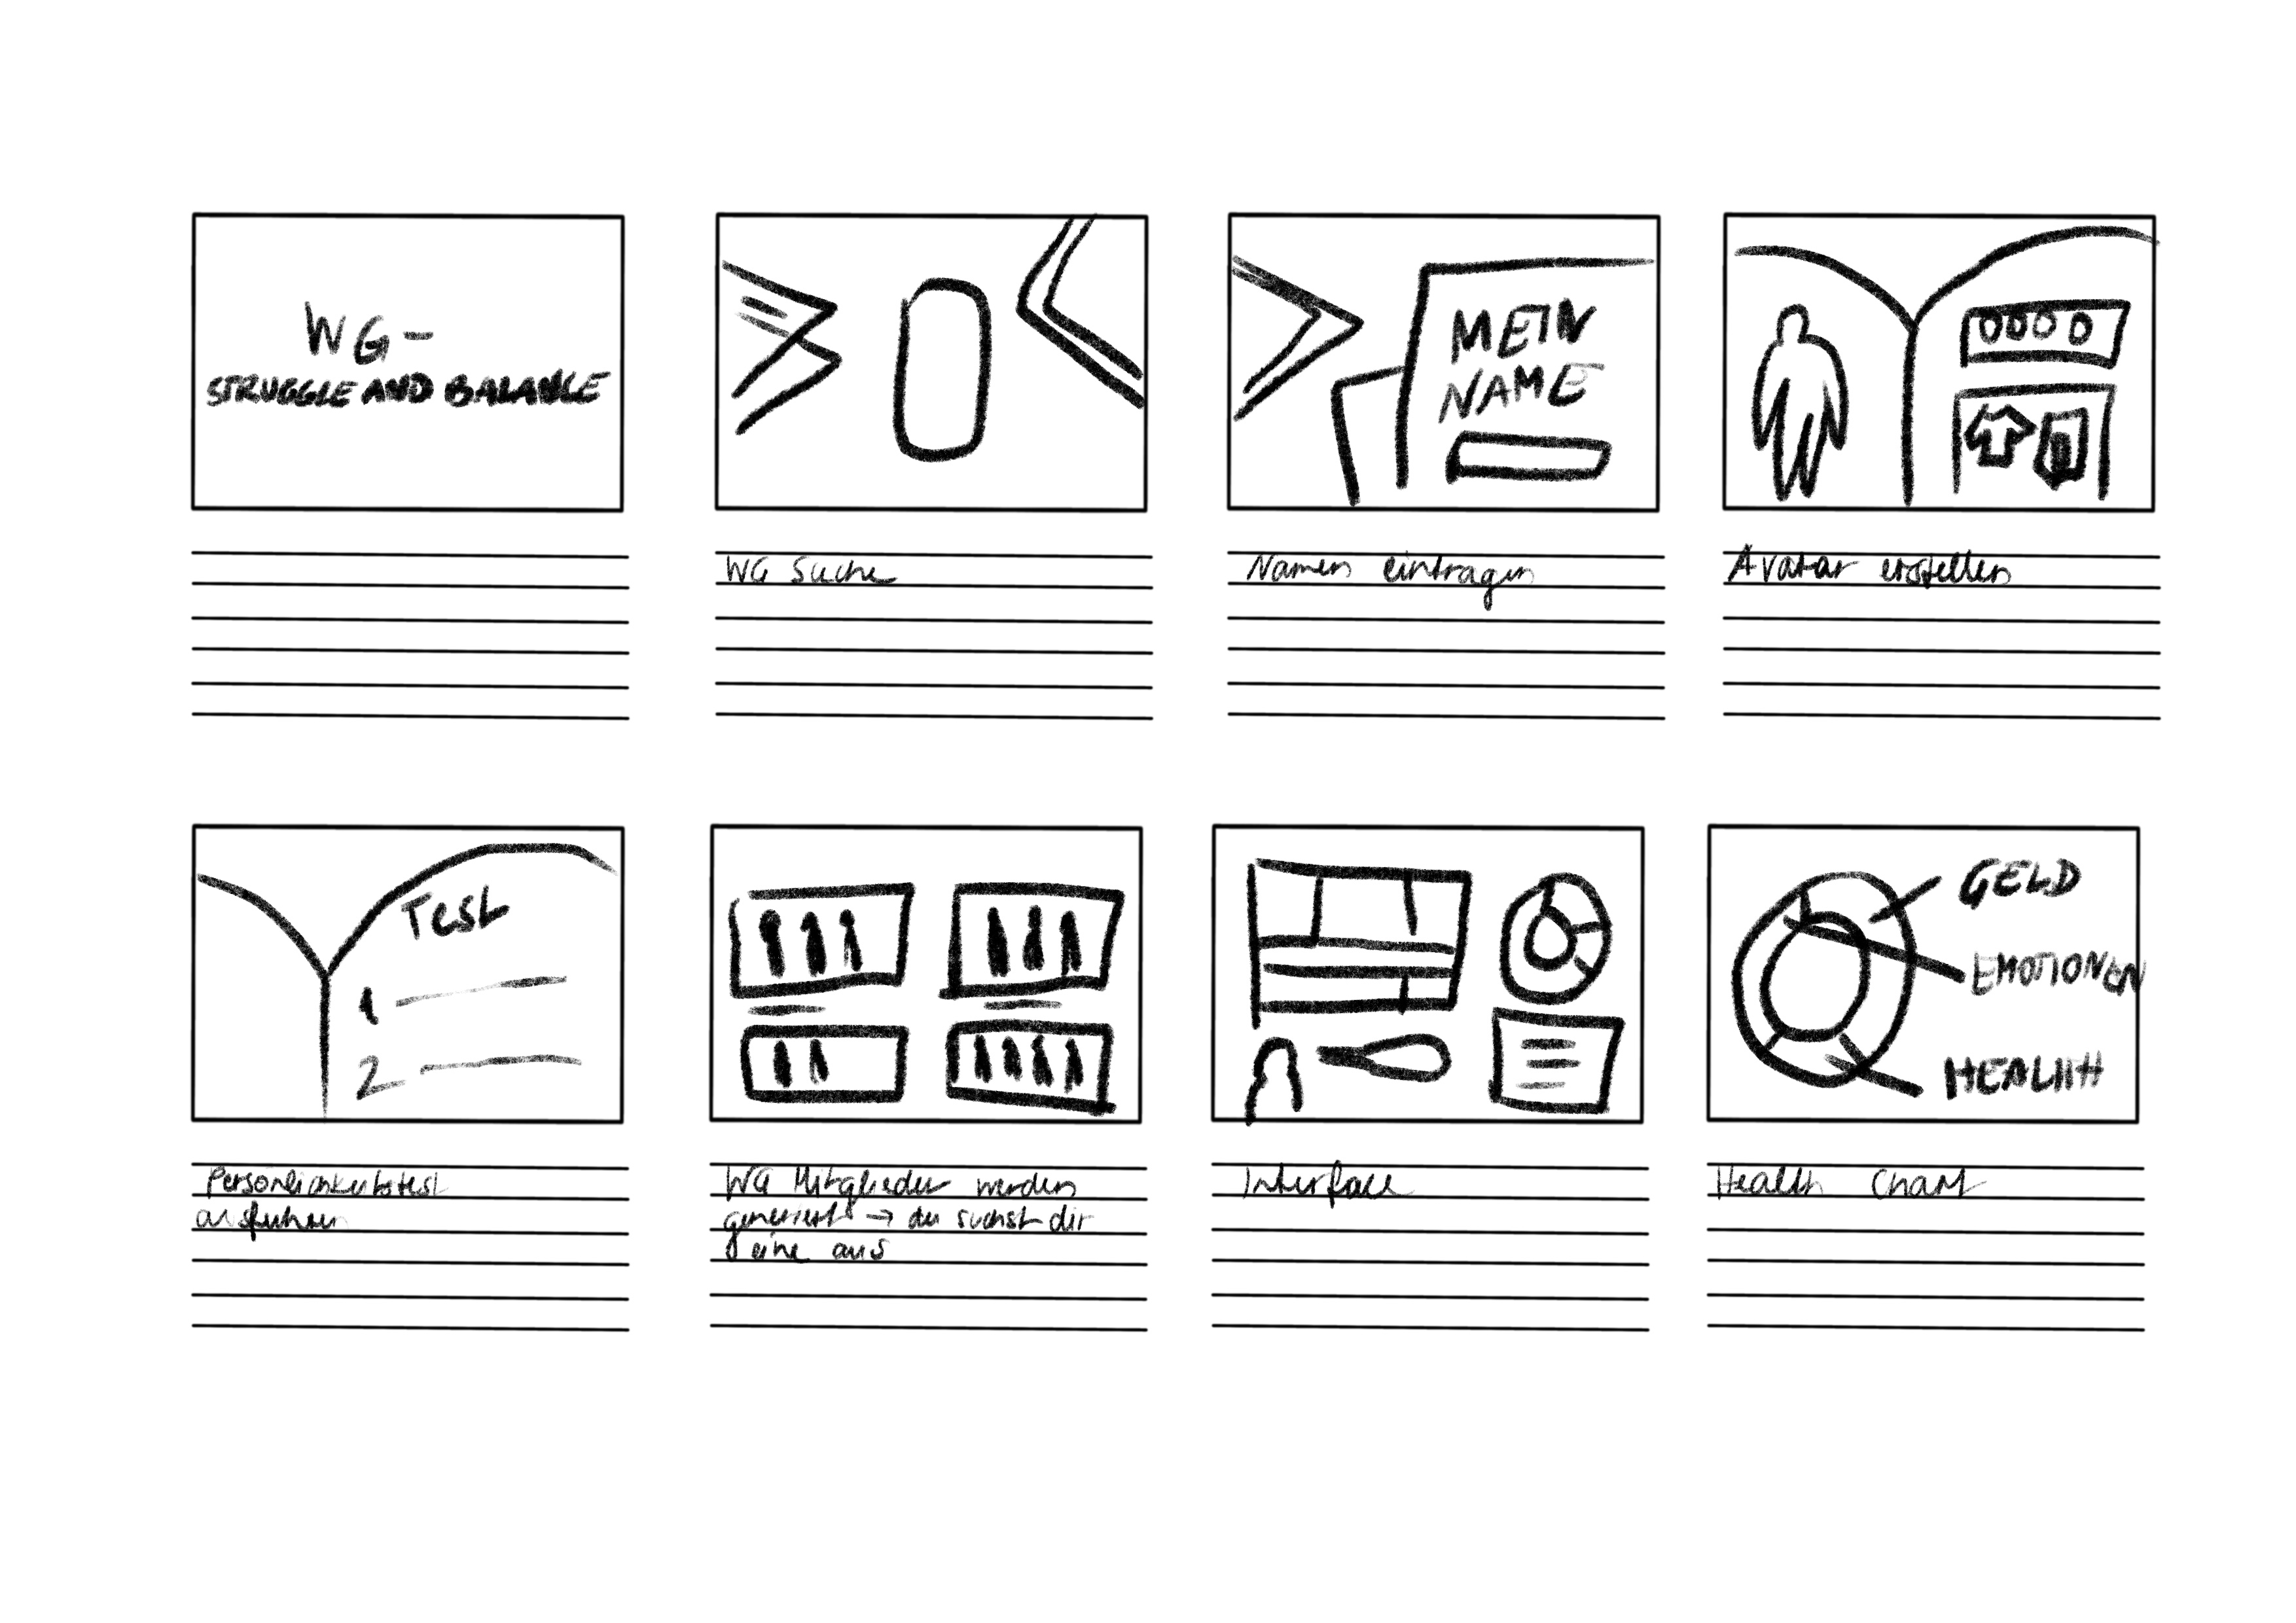 WG-
STRUGGLE AND BALANCE
WG Suche
MEIN
NAME
Namen eintragen
Avatar erstellen
Test
1
2
Persönlichkeitstest
ausführen
WG Mitglieder werden
generiert → du suchst dir
eine aus
Interface
GELD
EMOTIONEN
HEALTH
Health Chart